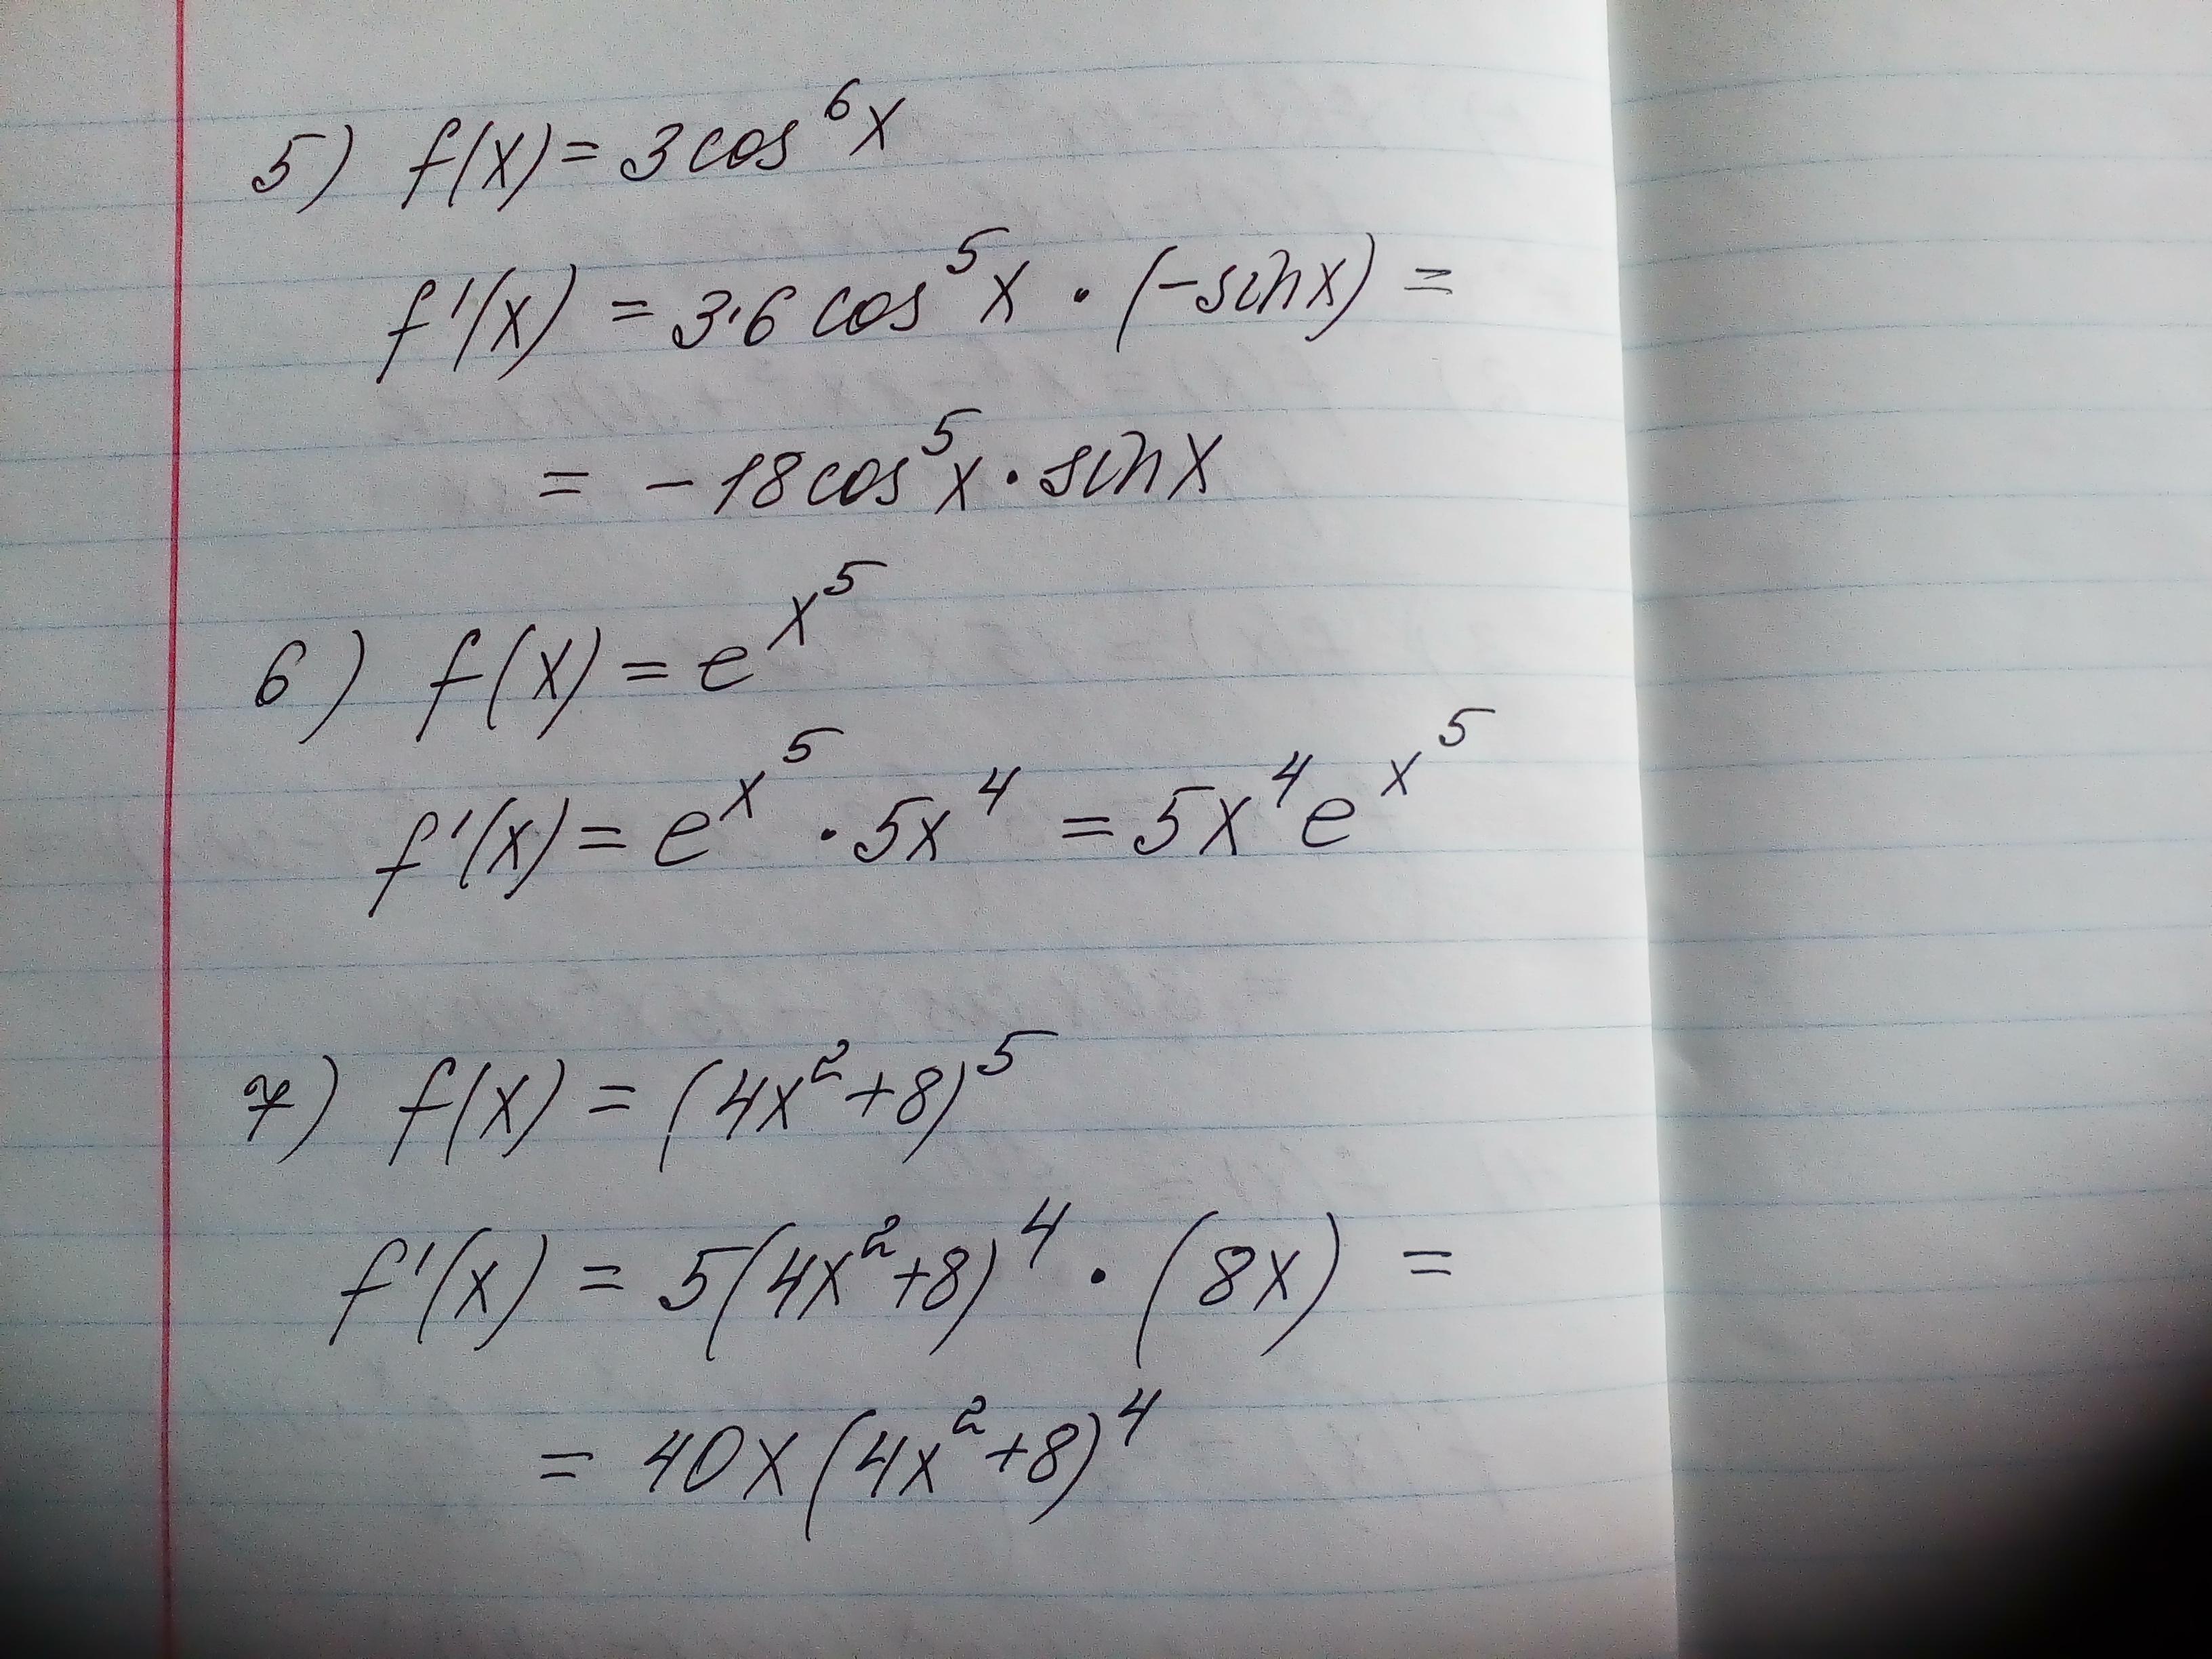 5) f(x) = 3 cos⁶x
f'(x) = 3·6 cos⁵x · (-sin x) =
= - 18 cos⁵x · sin x
6) f(x) = e^x^5
f'(x) = e^x^5 · 5x⁴ = 5x⁴e^x^5
7) f(x) = (4x²+8)⁵
f'(x) = 5(4x²+8)⁴ · (8x) =
= 40x(4x²+8)⁴